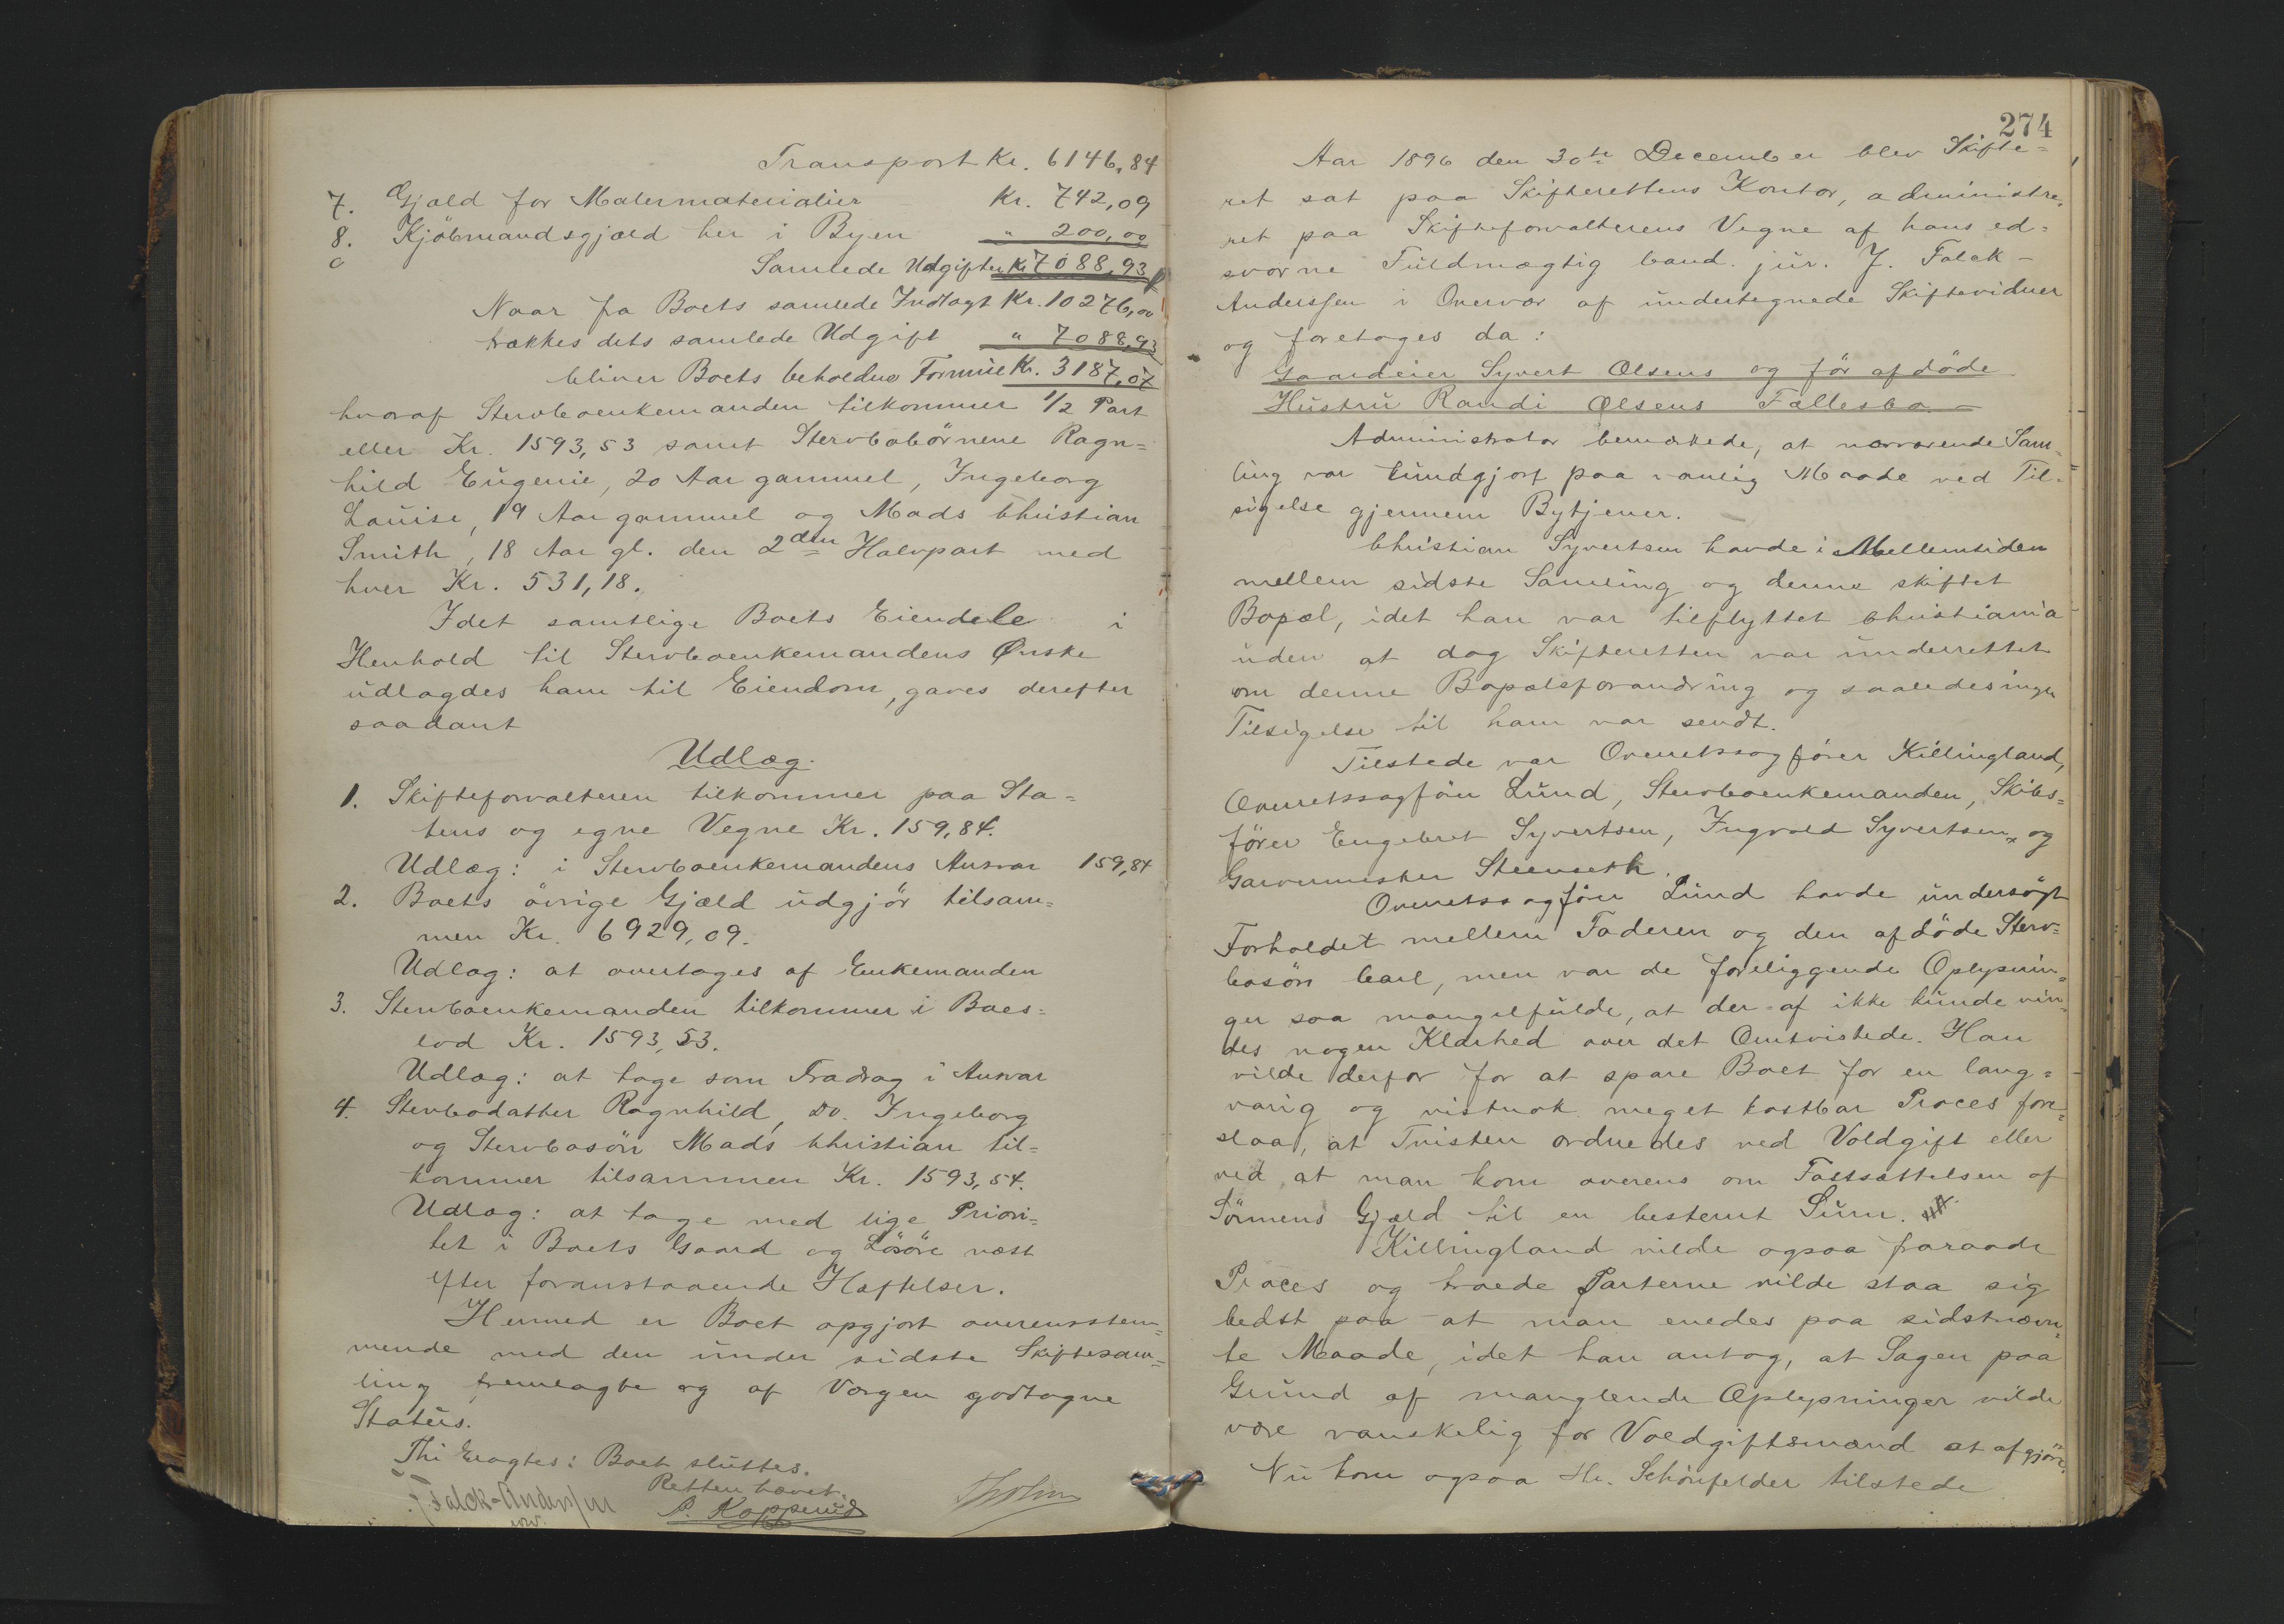 Transport Kr. 6146,84
7. Gjæld for Malermaterialier Kr. 742,09
8. Kjöbmandsgjæld her i Byen " 200,00
Samlede Udgifter Kr 7088,93
Naar fra Boets samlede Indtægt Kr. 10276,00
trækkes dets samlede Udgift " 7088,93
bliver Boets beholdne Formue Kr. 3187,07
hvoraf Stervboenkemanden tilkommer 1/2 Part
eller Kr. 1593,53 samt Stervbobörnene Ragn=
hild Eugenie, 20 Aar gammel, Ingeborg
Louise, 19 Aar gammel og Mads Christian
Smith, 18 Aar gl. den 2den Halvpart med
hver Kr. 531,18.
Idet samtlige Boets Eiendele i
Henhold til Stervboenkemandens Ønske
udlagdes ham til Eiendom, gaves derefter
saadant
Udlæg.
1. Skifteforvalteren tilkommer paa Sta=
tens og egne Vegne Kr. 159,84.
Udlæg: i Stervboenkemandens Ansvar 159,84
2. Boets övrige Gjæld udgjör tilsam=
men Kr. 6929,09.
Udlæg: at overtages af Enkemanden
3. Stervboenkemanden tilkommer i Boes=
lod Kr. 1593,53.
Udlæg: at tage som Fradrag i Ansvar
4. Stervbodatter Ragnhild, Do. Ingeborg
og Stervbosön Mads Christian til=
kommer tilsammen Kr. 1593,54.
Udlæg: at tage med lige Priori=
tet i Boets Gaard og Lösöre næst
efter foranstaaende Hæftelser.
Hermed er Boet opgjort overensstem=
mende med den under sidste Skiftesam=
ling fremlagte og af Værgen godtagne
Status.
Thi Eragtes: Boet sluttes.
Retten hævet.
J Falck-Anderssen
P. Kopperud
274
Aar 1896 den 30te December blev Skifte=
ret sat paa Skifterettens Kontor, administre,
ret paa Skifteforvalterens Vegne af hans ed=
svorne Fuldmægtig Cand. jur. J. Falck-
Anderssen i Overvær af undertegnede Skiftevidner
og foretoges da:
Gaardeier Syvert Olsens og för afdöde
Hustru Randi Olsens Fællesbo. -
Administrator bemærkede, at nærværende Sam=
ling var kundgjort paa vanlig Maade ved Til=
sigelse gjennem Bytjener.
Christian Syvertsen havde i Mellemtiden
mellem sidste Samling og denne skiftet
Bopæl, idet han var tilflyttet Christiania
uden at dog Skifteretten var underrettet
om denne Bopælsforandring og saaledes ingen
Tilsigelse til ham var sendt.
Tilstede var Overretssagförer Killingland,
Overretssagförer Lund, Stervboenkemanden, Skibs=
förer Engebret Syvertsen, Ingvald Syvertsen, og
Garvermester Steenseth.
Overretssagförer Lund havde undersögt
Forholdet mellem Faderen og den afdöde Sterv=
bosön Carl, men var de foreliggende Oplysnin=
ger saa mangelfulde, at der af ikke kunde vin=
des nogen Klarhed over det Omtvistede. Han
vilde derfor for at spare Boet for en lang=
varig og vistnok meget kostbar Proces fore=
slaa, at Tvisten ordnedes ved Voldgift eller
ved, at man kom overens om Fastsættelsen af
Sönnens Gjæld til en bestemt Sum.
Killingland vilde ogsaa fraraade
Proces og troede Parterne vilde staa sig
bedst paa at man enedes paa sidstnævn=
te Maade, idet han antog, at Sagen paa
Grund af manglende Oplysninger vilde
være vanskelig for Voldgiftsmænd at afgjöre.
Nu kom ogsaa Hr. Schönfelder tilstede